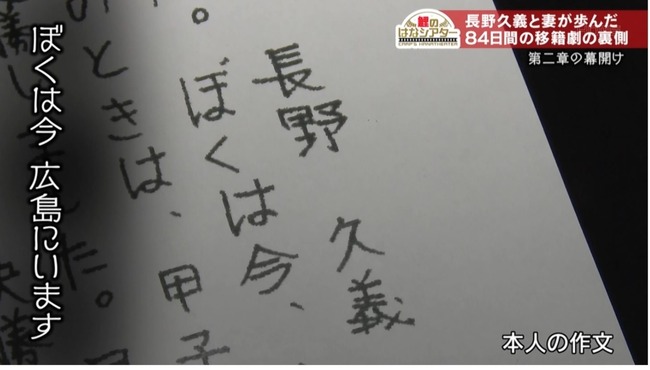 鯉の
はなシアター
CARP'S HANATHEATER
長野久義と妻が歩んだ
84日間の移籍劇の裏側
第二章の幕開け
ぼくは今 広島にいます
長野 久義
ぼくは今、
。
ときは、甲子
た。
本人の作文